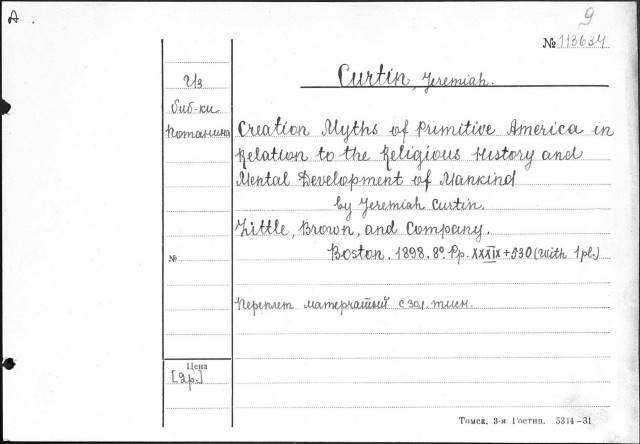 A.
9
№ 113634
Curtin, Jeremiah.
Из
биб-ки
Потанина
Creation Myths of Primitive America in
Relation to the Religious History and
Mental Development of Mankind
by Jeremiah Curtin.
Little, Brown, and Company.
Boston. 1898. 8°. Pp. XXXIX + 530 (with 1 pl.)
№
Переплет матерчатый с зол. тисн.
Цена
[2р.]
Томск. 3-я Гостип. 5314-31